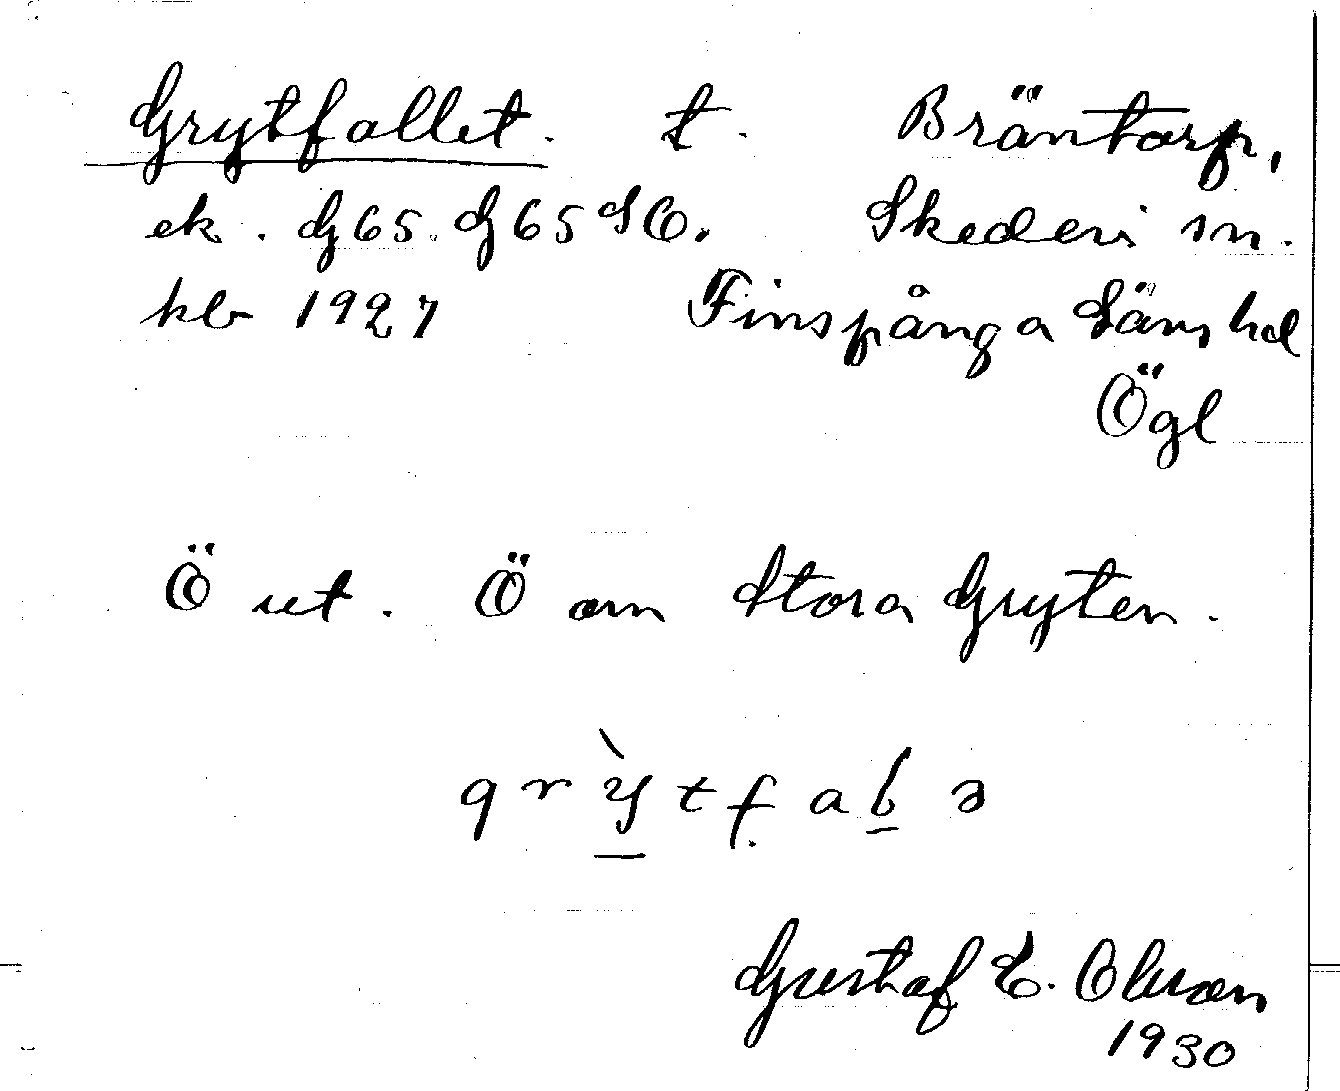 Grytfallet. t. Bräntorp,
ek. G65. G65 SO. Skedevi sn.
hlb 1927 Finspånga Läns hd
Ögl
Ö ut. Ö om Stora Gryten.
grỳtfaḻə
Gustaf E. Olsson
1930